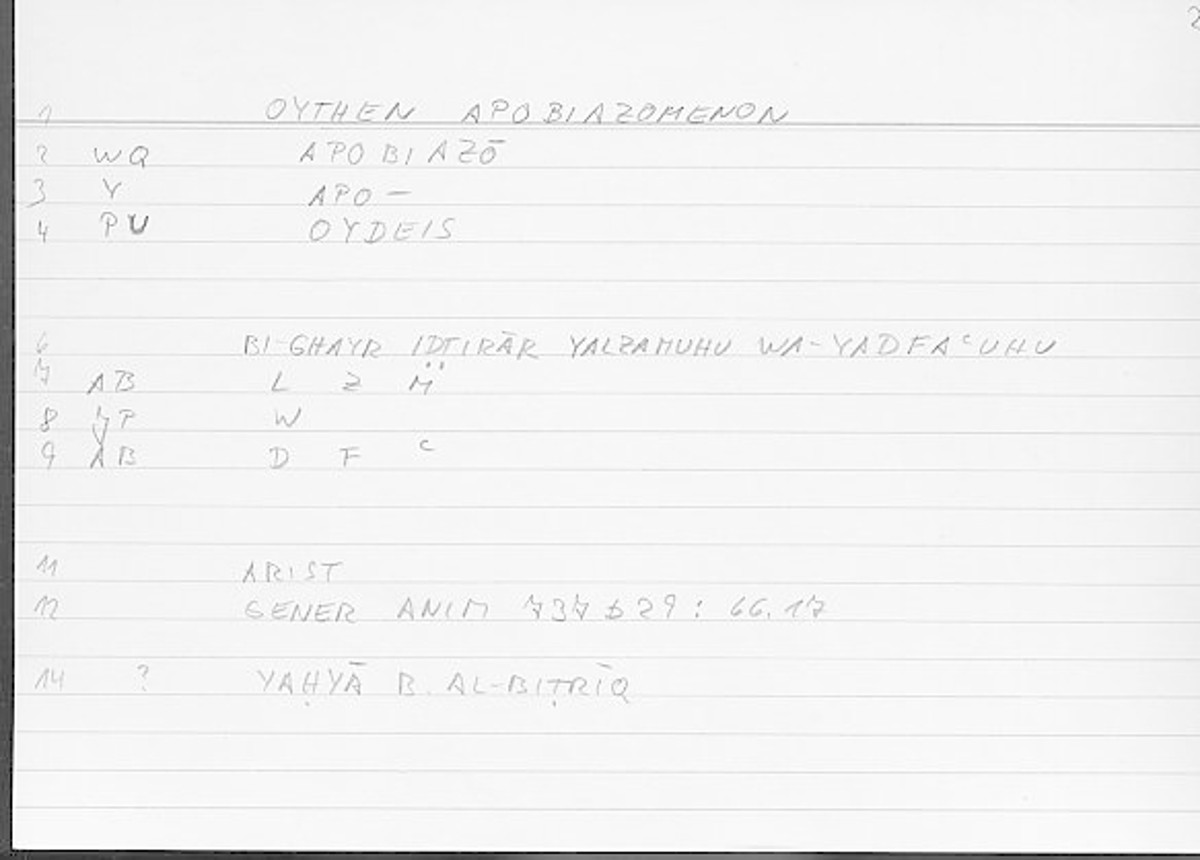 2
1 OYTHEN APOBIAZOMENON
2 WQ APOBIAZŌ
3 Y APO-
4 PU OYDEIS
6 BI-GHAYR IḌṬIRĀR YALZAMUHU WA-YADFAᶜUHU
7 AB L Z M
8 P W
9 AB D F ᶜ
11 ARIST
12 GENER ANIM 737 b 29 : 66.17
14 ? YAḤYĀ B. AL-BIṬRĪQ